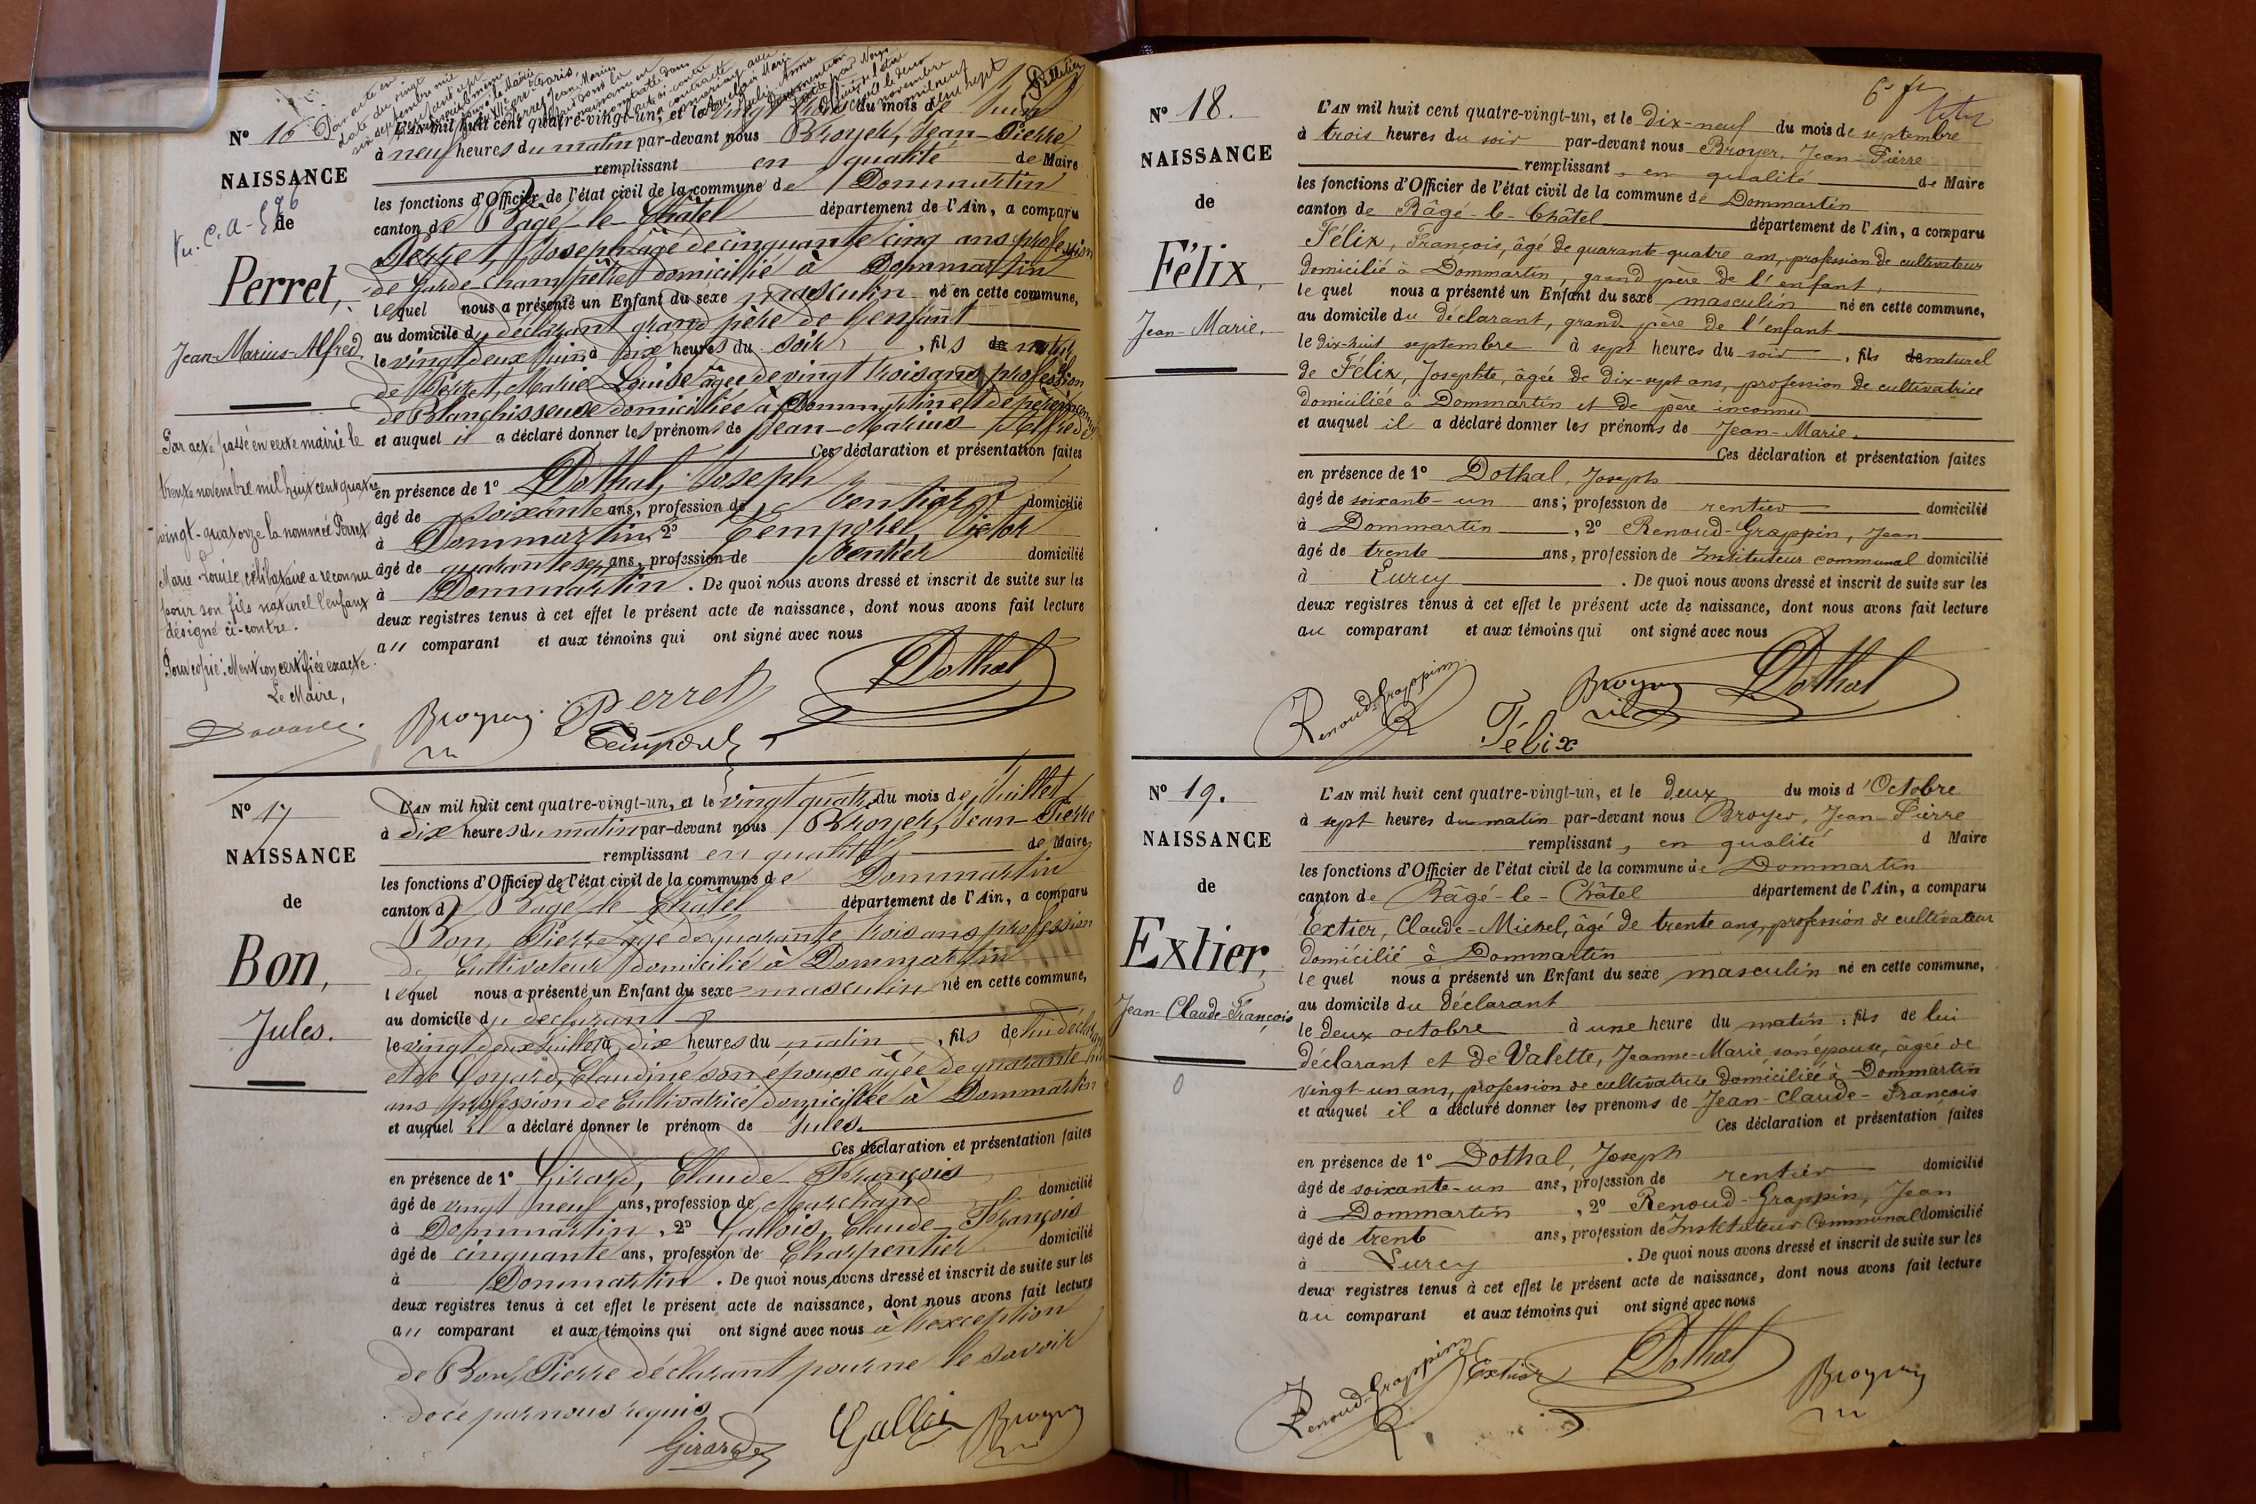 N° 16
NAISSANCE
de
Perret,
Jean-Marius-Alfred
Par acte passé en cette mairie le
trente novembre mil huit cent quatre
vingt-quatorze la nommée Perret
Marie Louise, célibataire a reconnu
pour son fils naturel l'enfant
désigné ci-contre.
Pour copie: Mention certifiée exacte.
Le Maire,
L'AN mil huit cent quatre-vingt-un, et le vingt trois du mois de Juin
à neuf heures du matin par-devant nous Broyer, Jean-Pierre
remplissant en qualité de Maire
les fonctions d'Officier de l'état civil de la commune de Dommartin
canton de Bâgé-le-Châtel département de l'Ain, a comparu
Perret, Joseph âgé de cinquante cinq ans profession
de Garde-Champêtre domicilié à Dommartin
lequel nous a présenté un Enfant du sexe masculin né en cette commune,
au domicile du déclarant grand père de l'enfant
le vingt deux Juin à dix heures du soir, fils de naturel
de Perret, Marie Louise âgée de vingt trois ans profession
de Blanchisseuse domiciliée à Dommartin et de père inconnu
et auquel il a déclaré donner les prénoms de Jean-Marius Alfred
Ces déclaration et présentation faites
en présence de 1° Dothal, Joseph
âgé de soixante ans, profession de rentier domicilié
à Dommartin, 2° Temporel Victor
âgé de quarante sept ans, profession de Rentier domicilié
à Dommartin. De quoi nous avons dressé et inscrit de suite sur les
deux registres tenus à cet effet le présent acte de naissance, dont nous avons fait lecture
au comparant et aux témoins qui ont signé avec nous
Dothal
Broyer Perret
Temporel
N° 17
NAISSANCE
de
Bon,
Jules.
L'AN mil huit cent quatre-vingt-un, et le vingt quatre du mois de Juillet
à dix heures du matin par-devant nous Broyer, Jean-Pierre
remplissant en qualité de Maire
les fonctions d'Officier de l'état civil de la commune de Dommartin
canton de Bâgé-le-Châtel département de l'Ain, a comparu
Bon, Pierre âgé de quarante trois ans profession
de Cultivateur domicilié à Dommartin
lequel nous a présenté un Enfant du sexe masculin né en cette commune,
au domicile du déclarant
le vingt deux Juillet à dix heures du matin, fils de lui déclarant
et de Goyard, Claudine son épouse âgée de quarante
ans profession de Cultivatrice domiciliée à Dommartin
et auquel il a déclaré donner le prénom de Jules.
Ces déclaration et présentation faites
en présence de 1° Girard, Claude François
âgé de vingt neuf ans, profession de Marchand domicilié
à Dommartin, 2° Gallois, Claude-François
âgé de cinquante ans, profession de Charpentier domicilié
à Dommartin. De quoi nous avons dressé et inscrit de suite sur les
deux registres tenus à cet effet le présent acte de naissance, dont nous avons fait lecture
au comparant et aux témoins qui ont signé avec nous à l'exception
de Bon, Pierre déclarant pour ne le savoir
de ce par nous requis
Girard Gallois Broyer
N° 18.
NAISSANCE
de
Félix,
Jean-Marie.
L'AN mil huit cent quatre-vingt-un, et le dix-neuf du mois de septembre
à trois heures du soir par-devant nous Broyer, Jean Pierre
remplissant, en qualité de Maire
les fonctions d'Officier de l'état civil de la commune de Dommartin
canton de Bâgé-le-Châtel département de l'Ain, a comparu
Félix, François, âgé de quarante quatre ans, profession de cultivateur
domicilié à Dommartin, grand père de l'enfant,
lequel nous a présenté un Enfant du sexe masculin né en cette commune,
au domicile du déclarant, grand père de l'enfant
le dix-huit septembre à sept heures du soir, fils de naturel
de Félix, Josephte, âgée de dix-sept ans, profession de cultivatrice
domiciliée à Dommartin et de père inconnu
et auquel il a déclaré donner les prénoms de Jean-Marie.
Ces déclaration et présentation faites
en présence de 1° Dothal, Joseph
âgé de soixante-un ans; profession de rentier domicilié
à Dommartin, 2° Renoud-Grappin, Jean
âgé de trente ans, profession de Instituteur communal domicilié
à Lurcy. De quoi nous avons dressé et inscrit de suite sur les
deux registres tenus à cet effet le présent acte de naissance, dont nous avons fait lecture
au comparant et aux témoins qui ont signé avec nous
Renoud-Grappin Broyer Dothal
Félix
N° 19.
NAISSANCE
de
Extier,
Jean-Claude-François
L'AN mil huit cent quatre-vingt-un, et le deux du mois d'Octobre
à sept heures du matin par-devant nous Broyer, Jean-Pierre
remplissant, en qualité d Maire
les fonctions d'Officier de l'état civil de la commune de Dommartin
canton de Bâgé-le-Châtel département de l'Ain, a comparu
Extier, Claude-Michel, âgé de trente ans, profession de cultivateur
domicilié à Dommartin
lequel nous a présenté un Enfant du sexe masculin né en cette commune,
au domicile du déclarant
le deux octobre à une heure du matin, fils de lui
déclarant et de Valette, Jeanne-Marie son épouse, âgée de
vingt-un ans, profession de cultivatrice domiciliée à Dommartin
et auquel il a déclaré donner les prénoms de Jean-Claude-François
Ces déclaration et présentation faites
en présence de 1° Dothal, Joseph
âgé de soixante-un ans, profession de rentier domicilié
à Dommartin, 2° Renoud-Grappin, Jean
âgé de trente ans, profession de Instituteur Communal domicilié
à Lurcy. De quoi nous avons dressé et inscrit de suite sur les
deux registres tenus à cet effet le présent acte de naissance, dont nous avons fait lecture
au comparant et aux témoins qui ont signé avec nous
Renoud-Grappin Extier Dothal Broyer